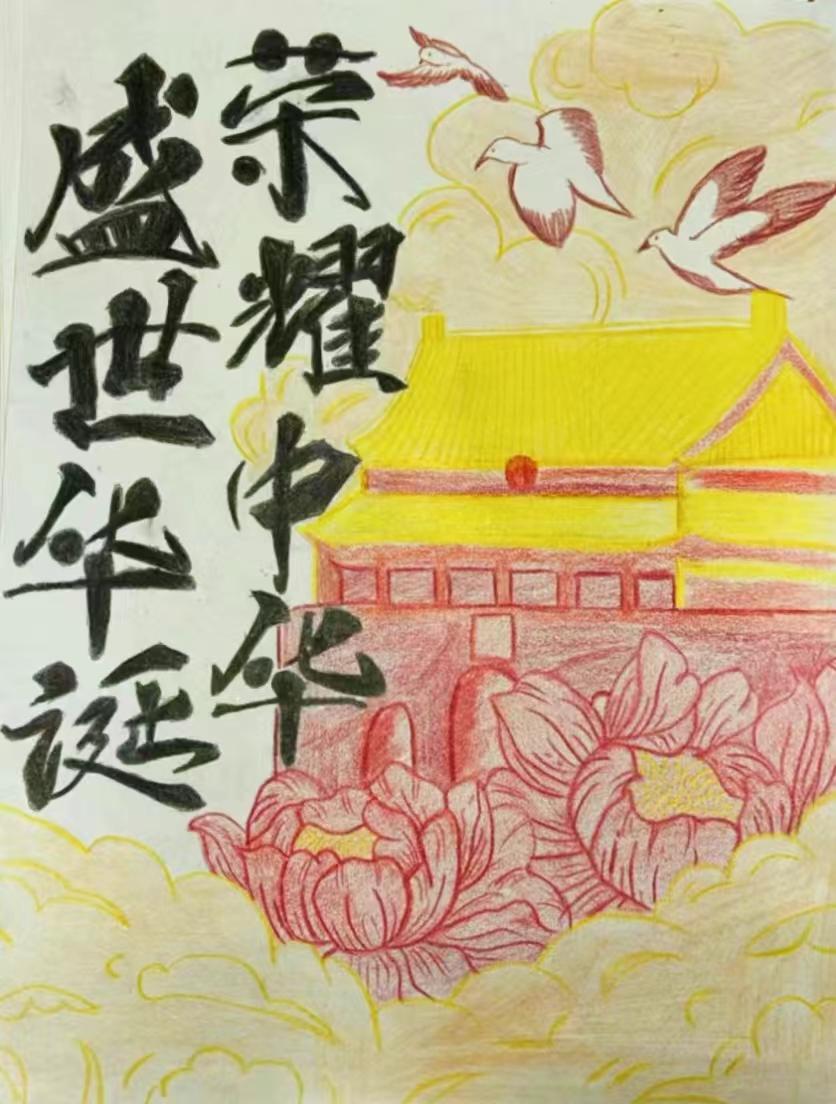 荣耀中华
盛世华诞